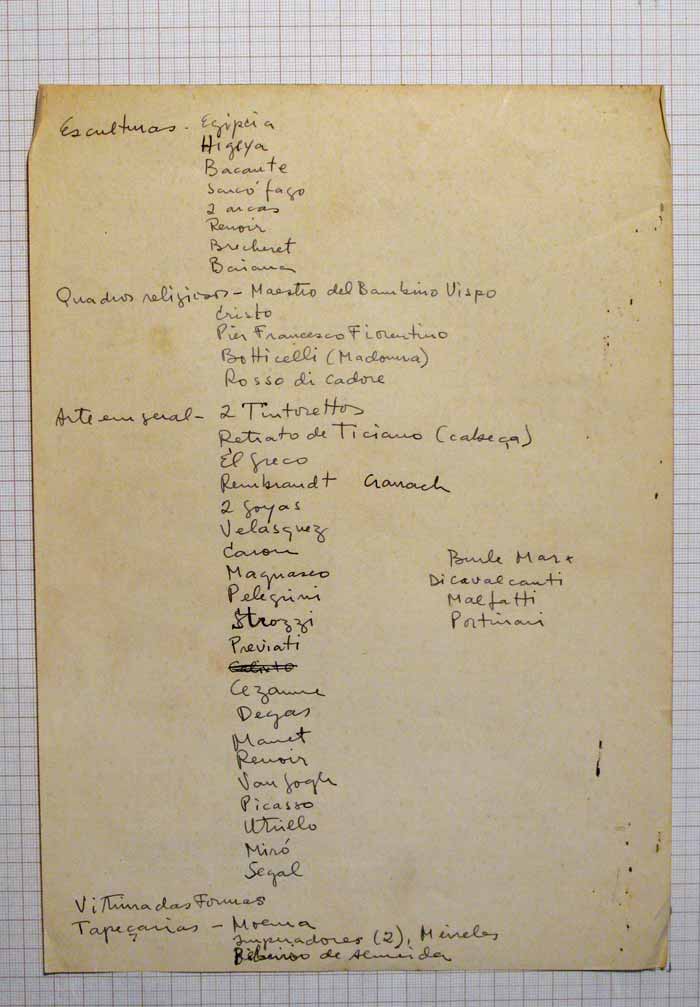 Esculturas - Egipcia
Higeya
Bacante
Sarcófago
2 arcas
Renoir
Brecheret
Baiana
Quadros religiosos - Maestro del Bambino Vispo
Cristo
Pier Francesco Fiorentino
Botticelli (Madonna)
Rosso di cadore
Arte em geral - 2 Tintorettos
Retrato de Ticiano (cabeça)
El Greco
Rembrandt Cranach
2 Goyas
Velásquez
Caron
Magnasco
Pelegrini
Strozzi
Previati
Cezanne
Degas
Manet
Renoir
Van Gogh
Picasso
Utrillo
Miró
Segal
Burle Marx
Di Cavalcanti
Malfatti
Portinari
Vitrina das Formas
Tapeçarias - Moema
(2), Meireles
de Almeida